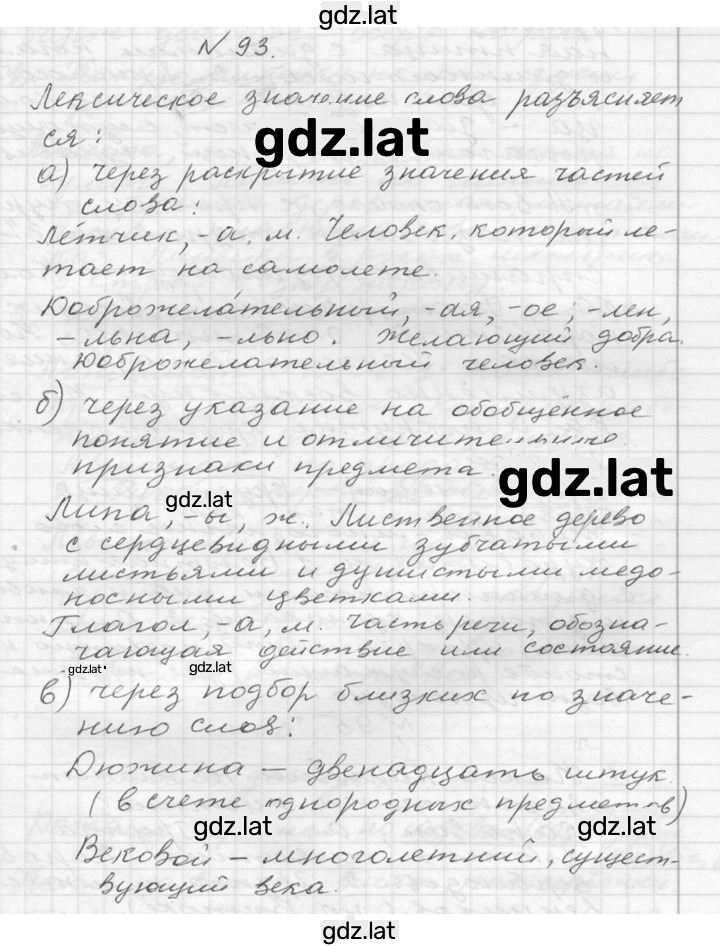 gdz.lat
N 93.
Лексическое значение слова разъясняет
ся:
gdz.lat
а) через раскрытие значения частей
слова:
Лётчик, -а, м. Человек, который ле-
тает на самолете.
Доброжела́тельный, -ая, -ое; -лен,
-льна, -льно. Желающий добра.
Доброжелательный человек.
б) через указание на обобщённое
понятие и отличительные
признаки предмета.
gdz.lat
gdz.lat
Липа, -ы, ж. Лиственное дерево
с сердцевидными зубчатыми
листьями и душистыми медо-
носными цветками.
Глагол, -а, м. Часть речи, обозна-
чающая действие или состояние.
gdz.lat
gdz.lat
в) через подбор близких по значе-
нию слов:
Дюжина – двенадцать штук
(в счете однородных предметов)
gdz.lat
gdz.lat
Вековой – многолетний, сущест-
вующий века.
gdz.lat